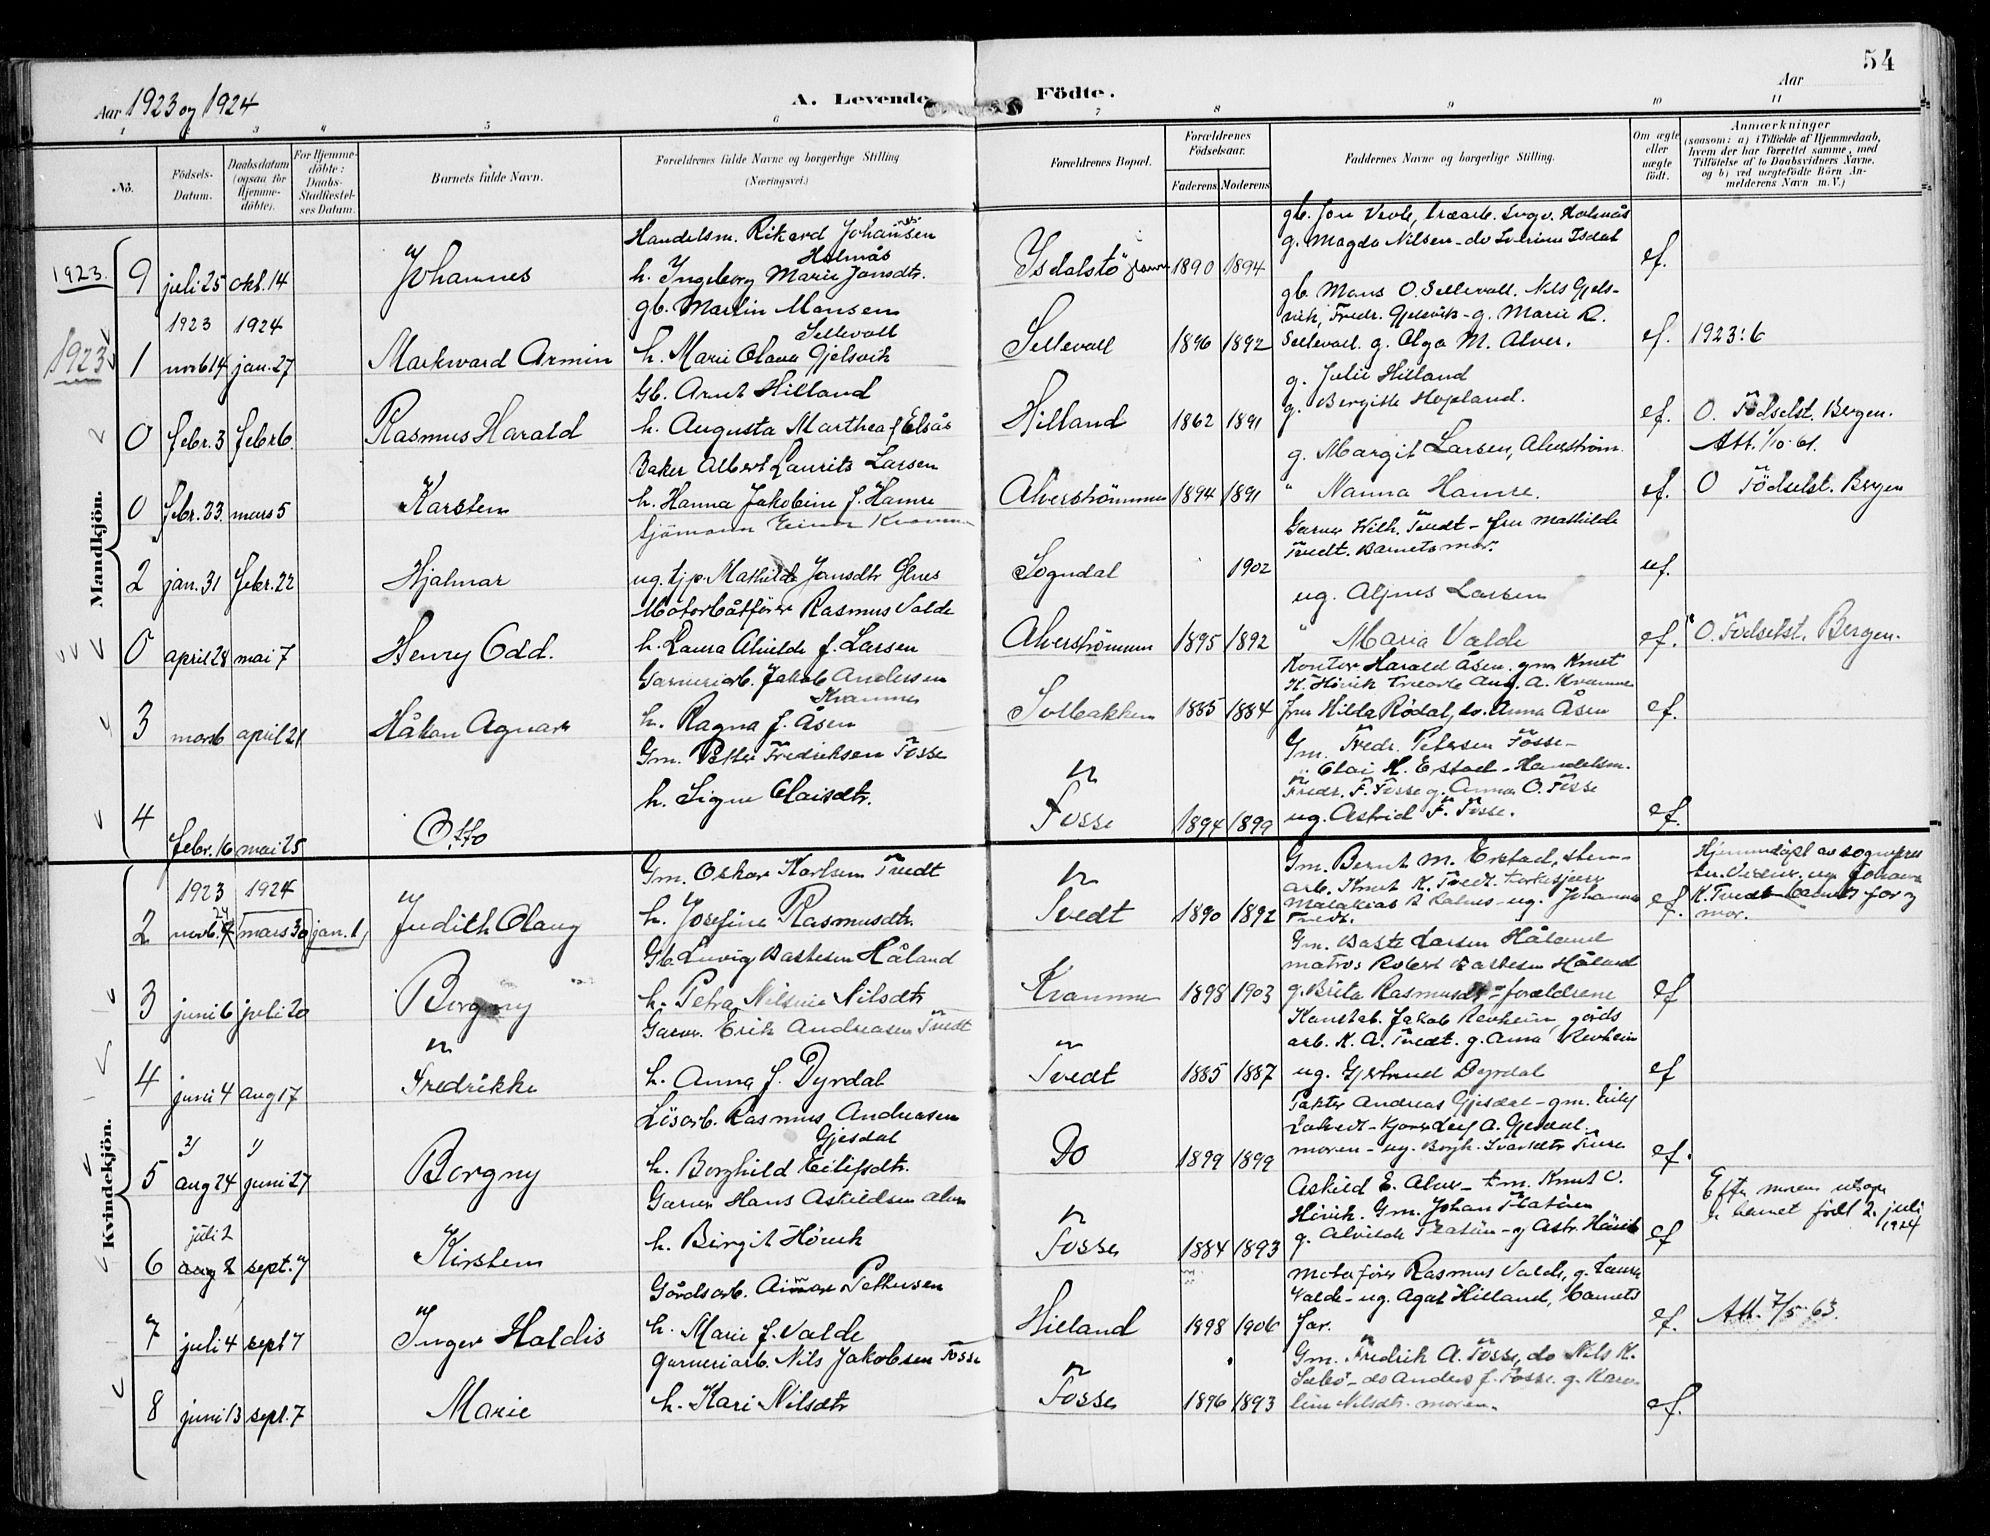 54
Aar 1923 og 1924
A. Levende Födte.
Aar
1 3 4 5 6 7 8 9 10 11
No.
Födsels-Datum.
Daabsdatum (ogsaa for Hjemme-döbte).
For Hjemme-döbte: Daabs-Stadfæstel-ses Datum.
Barnets fulde Navn.
Forældrenes fulde Navne og borgerlige Stilling (Næringsvei.)
Forældrenes Bopæl.
Forældrenes Födselsaar.
Faderens. Moderens.
Faddernes Navne og borgerlige Stilling.
Om ægte eller uægte födt.
Anmærkninger
(saasom: a) i Tilfælde af Hjemmedaab, hvem der har forrettet samme, med Tilföielse af to Daabsvidners Navne, og b) ved uægtefödte Börn An-melderens Navn m. V.)
Mandkjön.
1923.
9 juli 25 okt. 14 Johannes
Handelsm. Rikard Johannsen
Holmås
h. Ingeborg Marie Jansdtr.
Isdalstö 1890 1894
g. Magda Nilsen - do Severine Isdal
ef.
1923 1924
1923
1 novb 14 jan. 27 Markward Armin
gb. Martin Monsen
Sellevoll
h. Marie Olava Gjelsvik
Sellevoll 1896 1892
gb. Mons O. Sellevoll. Nils Gjels-
vik, Fredr. Gjelsvik - g. Marie R.
Sellevoll. g. Olga M. Alver.
ef. 1923: 6
0 febr. 3 febr 6. Rasmus Harald
Gb. Arnt Hilland
h. Augusta Marthea f Elsås
Hilland 1862 1891
g. Julie Hilland
g. Bergitte Hopland.
ef. O. Födselst. Bergen.
Att. 1/10-61.
0 febr. 23. mars 5 Karsten
Baker Albert Laurits Larsen
h. Hanna Jakobine f. Hamre
Alverströmmen 1894 1891
g. Margit Larsen, Alverström
" Nanna Hamre.
ef. O Födselst. Bergen
2 jan. 31 febr. 22 Hjalmar
Sjömann Einar
ug. tj.p. Mathilde Jansdtr
Sogndal 1902
Garver Wilh. Tvedt - fru Mathilde
Tvedt. Barnets mor.
uf.
0 april 28 mai 7 Henry Odd.
Motorbåtförer Rasmus Valde
h. Laura Alvilde f. Larsen
Alverströmmen 1895 1892
ug. Agnes Larsen
" Maria Valde
ef. O. Födselst. Bergen.
3 mars 6 april 21 Håkon Agnar
Garveriarb. Jakob Andersen
Kvamme
h. Ragna f. Åsen
Solbakken 1885 1884
Kontor Harald Åsen. gm Knut
K. Hövik Aug. A. Kvamme
fru Hilda Rödal, do. Anna Åsen
ef.
4 febr. 16 mai 25 Otto
Gm. Petter Fredriksen Fosse
h. Signe Olaisdtr.
Fosse 1894 1899
Gm. Fredr. Petersen Fosse -
" Olai H. Erstad - Handelsm.
Fredr. F. Fosse g. Anna O. Fosse
ug. Astrid F. Fosse.
ef.
Kvindekjön.
1923 1924
2 novb. 24 mars 30 jan. 1 Judith Olaug
Gm. Oskar Karlsen Tvedt
h. Josefine Rasmusdtr.
Tvedt 1890 1892
Gm. Bernt M. Erstad, sten-
arb. Knut K. Tvedt. kirkesjener
ug. Johanna
Tvedt.
ef. Hjemmedöpt av sogneprest
K. Tvedt - barnets far og
mor.
3 juni 6 juli 20 Borgny
Gb. Luvig Bastesen Håland
h. Petra Nilsine Nilsdtr
Kvamme 1898 1903
Gm. Baste Larsen Håland
matros Robert Bastesen Håland
g. Brita Rasmusdtr - forældrene
ef
4 juni 4 aug 17 Fredrikke
Garv. Erik Andreasen Tvedt
h. Anna f. Dyrdal
Tvedt 1885 1887
Konstab. Jakob Revheim, gårds
arb. K. A. Tvedt. g. Anna Revheim
ug. Gjertrud Dyrdal
ef
5 aug 24 juni 27 Borgny
Lösarb. Rasmus Andreasen
Gjesdal
h. Borghild Eilifsdtr.
Do 1899 1899
Andreas Gjesdal - gm. Eilif
Leif A. Gjesdal.
moren - ug. Borgh.
ef.
juli 2
6 aug 2 sept. 7 Kirsten
Garver Hans Askildsen Alver
h. Birgit Hövik
Fosse 1884 1893
Askild E. Alver - Knut O.
Hövik. Gm. Johan Flatöen
g. Alvilde Flatöen - g Astr. Hövik
ef
Efter morens utsagn
er barnet födt 2. juli
1924
7 juli 4 sept 7 Inger Haldis
Gårdsarb. Petersen
h. Marie f. Valde
Hilland 1898 1906
Motorförer Rasmus Valde, g. Laura
Valde - ug. Agat Hilland, barnets
far.
ef. Att. 7/5-63.
8 juni 13 sept. 7 Marie
Garveriarb. Nils Jakobsen Fosse
h. Kari Nilsdtr
Fosse 1896 1893
Gm. Fredrik A. Fosse, do Nils K.
Sæbö - do Anders J. Fosse. g. Karo-
line Nilsdtr. moren.
ef.